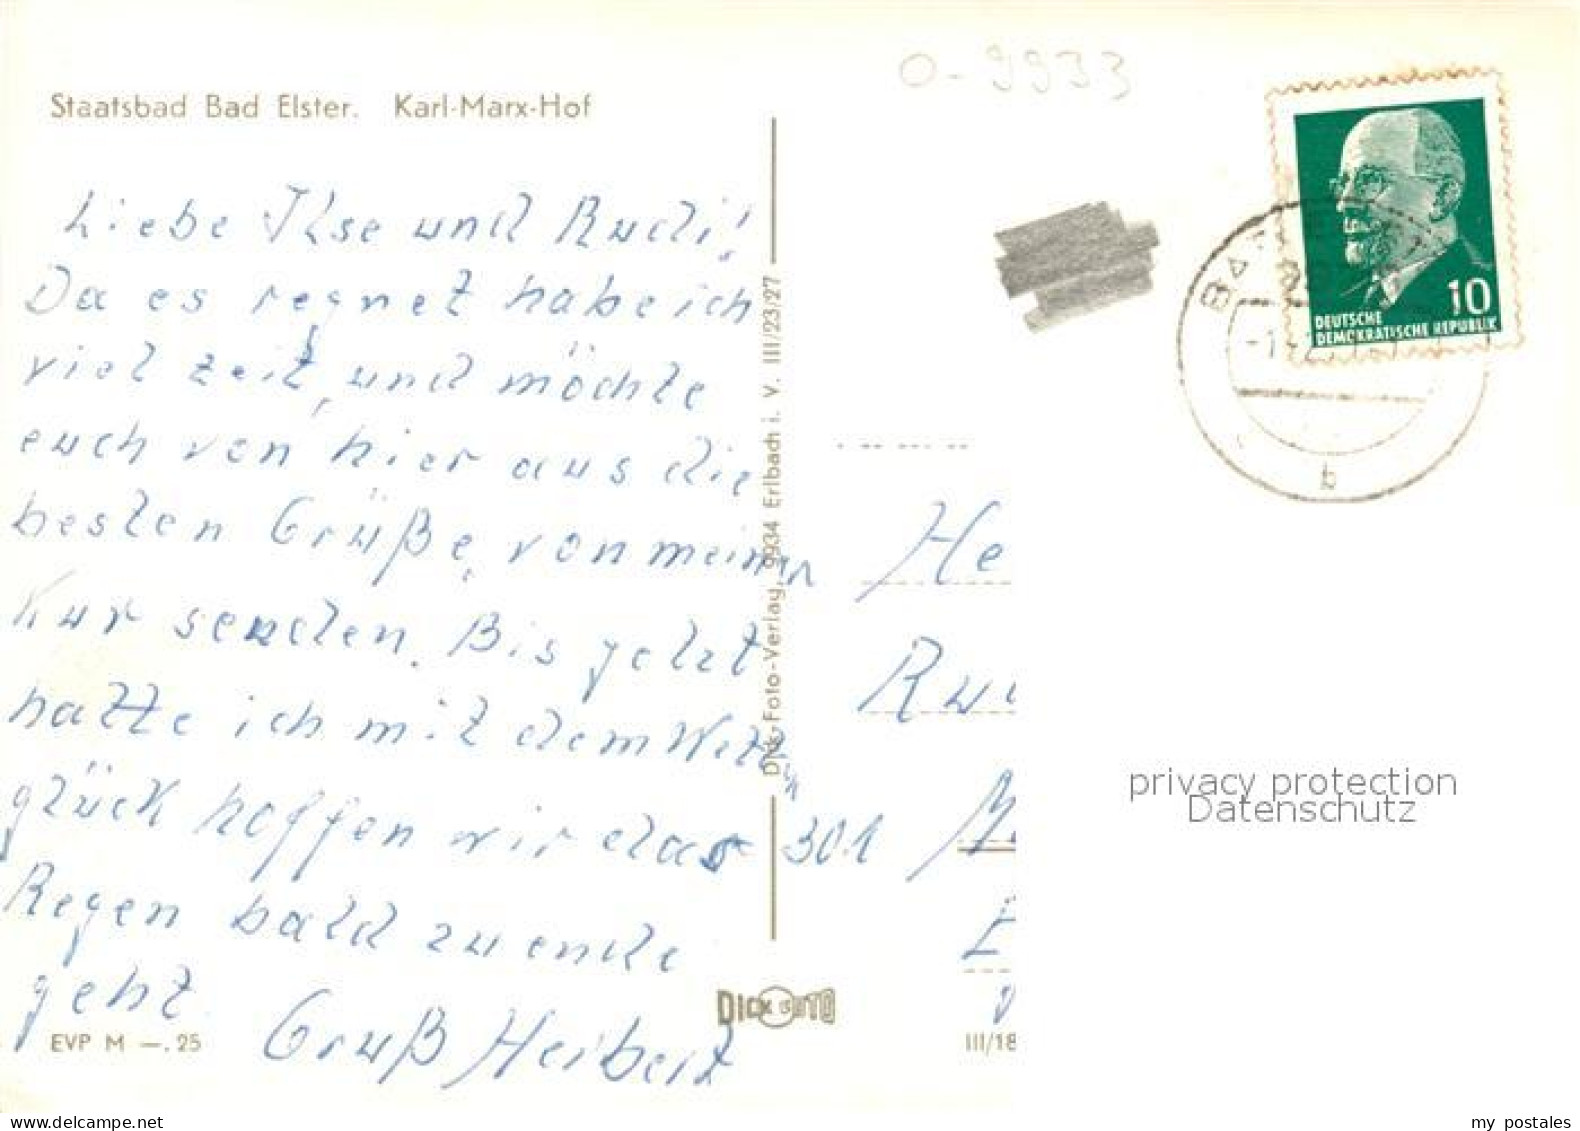 O-9933
Staatsbad Bad Elster. Karl-Marx-Hof
Liebe Ilse und Rudi!
Da es regnet habe ich
viel zeit, und möchte
euch von hier aus die
besten Grüße, von meiner
Kur senden. Bis jetzt
hatte ich mit dem Wetter
glück hoffen wir das
Regen bald zu ende
geht.
Gruß Herbert
EVP M —.25
Dick-Foto-Verlag, 9934 Erlbach i. V. III/23/27
DICK FOTO
10
DEUTSCHE
DEMOKRATISCHE REPUBLIK
BAD
b
He
Ru
301
III/18
privacy protection
Datenschutz
www.delcampe.net
my postales